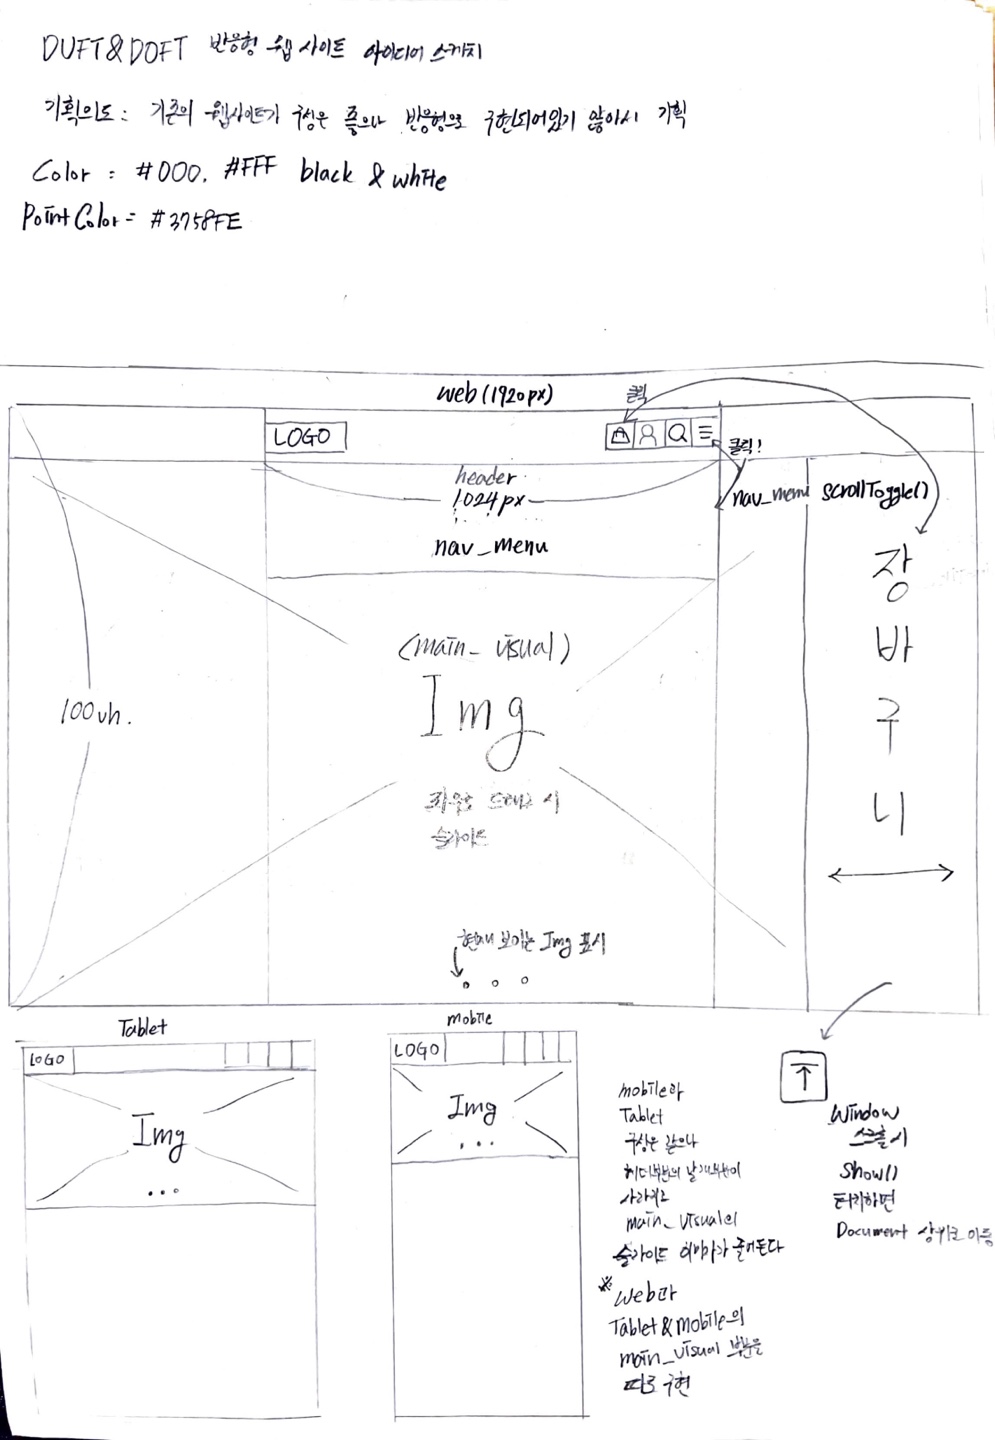 DUFT&DOFT 반응형 웹 사이트 아이디어 스케치
기획의도 : 기존의 웹사이트가 구상은 좋으나 반응형으로 구현되어있기 않아서 기획
Color : #000. #FFF black & white
Point Color = #3758FE
web (1920px)
클릭
LOGO
클릭!
header
1024px
nav_menu scrollToggle()
nav_menu
장
바
구
니
(main_visual)
Img
100vh.
좌우로 드래그 시
슬라이드
현재 보이는 Img 표시
Tablet
mobile
LOGO
LOGO
Img
Img
mobile과
Tablet
구상은 같으나
헤더부분의 날개부분이
사라지고
main_visual의
슬라이드 이미지가 줄어든다
※ Web과
Tablet & Mobile의
main_visual 부분을
따로 구현
Window
스크롤 시
Show()
터치하면
Document 상위로 이동